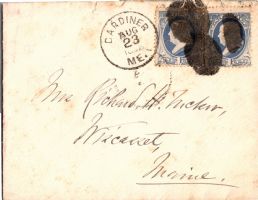 GARDINER
AUG
23
ME.
Mrs Richard H. Tucker,
Wiscasset,
Maine.